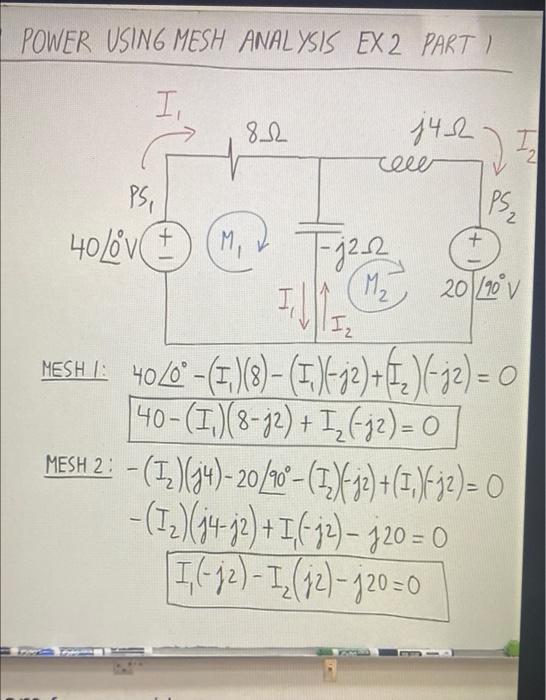 POWER USING MESH ANALYSIS EX 2 PART 1
I₁
8Ω
j4Ω
I₂
PS₁
PS₂
40∠0° V
+
-
M₁
-j2Ω
M₂
+
-
20∠90° V
I₁
I₂
MESH 1: 40∠0° - (I₁)(8) - (I₁)(-j2) + (I₂)(-j2) = 0
40 - (I₁)(8-j2) + I₂(-j2) = 0
MESH 2: -(I₂)(j4) - 20∠90° - (I₂)(-j2) + (I₁)(-j2) = 0
-(I₂)(j4-j2) + I₁(-j2) - j20 = 0
I₁(-j2) - I₂(j2) - j20 = 0